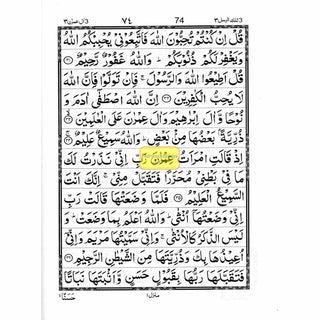 تلك الرسل ٣ 74 ٧٤ ال عمرٰن ٣
قُلْ اِنْ كُنْتُمْ تُحِبُّوْنَ اللّٰهَ فَاتَّبِعُوْنِيْ يُحْبِبْكُمُ اللّٰهُ
وَيَغْفِرْ لَكُمْ ذُنُوْبَكُمْ ؕ وَاللّٰهُ غَفُوْرٌ رَّحِيْمٌ ۝۳۱
قُلْ اَطِيْعُوا اللّٰهَ وَالرَّسُوْلَ ۚ فَاِنْ تَوَلَّوْا فَاِنَّ اللّٰهَ
لَا يُحِبُّ الْكٰفِرِيْنَ ۝۳۲ اِنَّ اللّٰهَ اصْطَفٰٓى اٰدَمَ وَ
نُوْحًا وَّاٰلَ اِبْرٰهِيْمَ وَاٰلَ عِمْرٰنَ عَلَى الْعٰلَمِيْنَ ۝۳۳
ذُرِّيَّةًۢ بَعْضُهَا مِنْۢ بَعْضٍ ؕ وَاللّٰهُ سَمِيْعٌ عَلِيْمٌ ۝۳۴
اِذْ قَالَتِ امْرَاَتُ عِمْرٰنَ رَبِّ اِنِّيْ نَذَرْتُ لَكَ
مَا فِيْ بَطْنِيْ مُحَرَّرًا فَتَقَبَّلْ مِنِّيْ ۚ اِنَّكَ اَنْتَ
السَّمِيْعُ الْعَلِيْمُ ۝۳۵ فَلَمَّا وَضَعَتْهَا قَالَتْ رَبِّ
اِنِّيْ وَضَعْتُهَآ اُنْثٰى ؕ وَاللّٰهُ اَعْلَمُ بِمَا وَضَعَتْ ؕ وَ
لَيْسَ الذَّكَرُ كَالْاُنْثٰى ۚ وَاِنِّيْ سَمَّيْتُهَا مَرْيَمَ وَاِنِّيْٓ
اُعِيْذُهَا بِكَ وَذُرِّيَّتَهَا مِنَ الشَّيْطٰنِ الرَّجِيْمِ ۝۳۶
فَتَقَبَّلَهَا رَبُّهَا بِقَبُوْلٍ حَسَنٍ وَّاَنْۢبَتَهَا نَبَاتًا
منزل ١ حَسَنًا